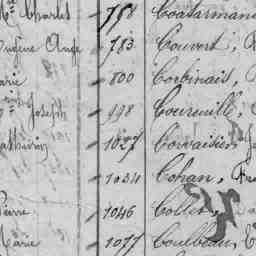 Charles 758 Coatarmanac
Eugène Ange 783 Couvert,
Marie 800 Corbinais,
Joseph 998 Coureuille,
Mathurin 1027 Corvaisier,
1034 Cohan, Fr
Pierre 1046 Collet,
Marie 1077 Coulbeau,